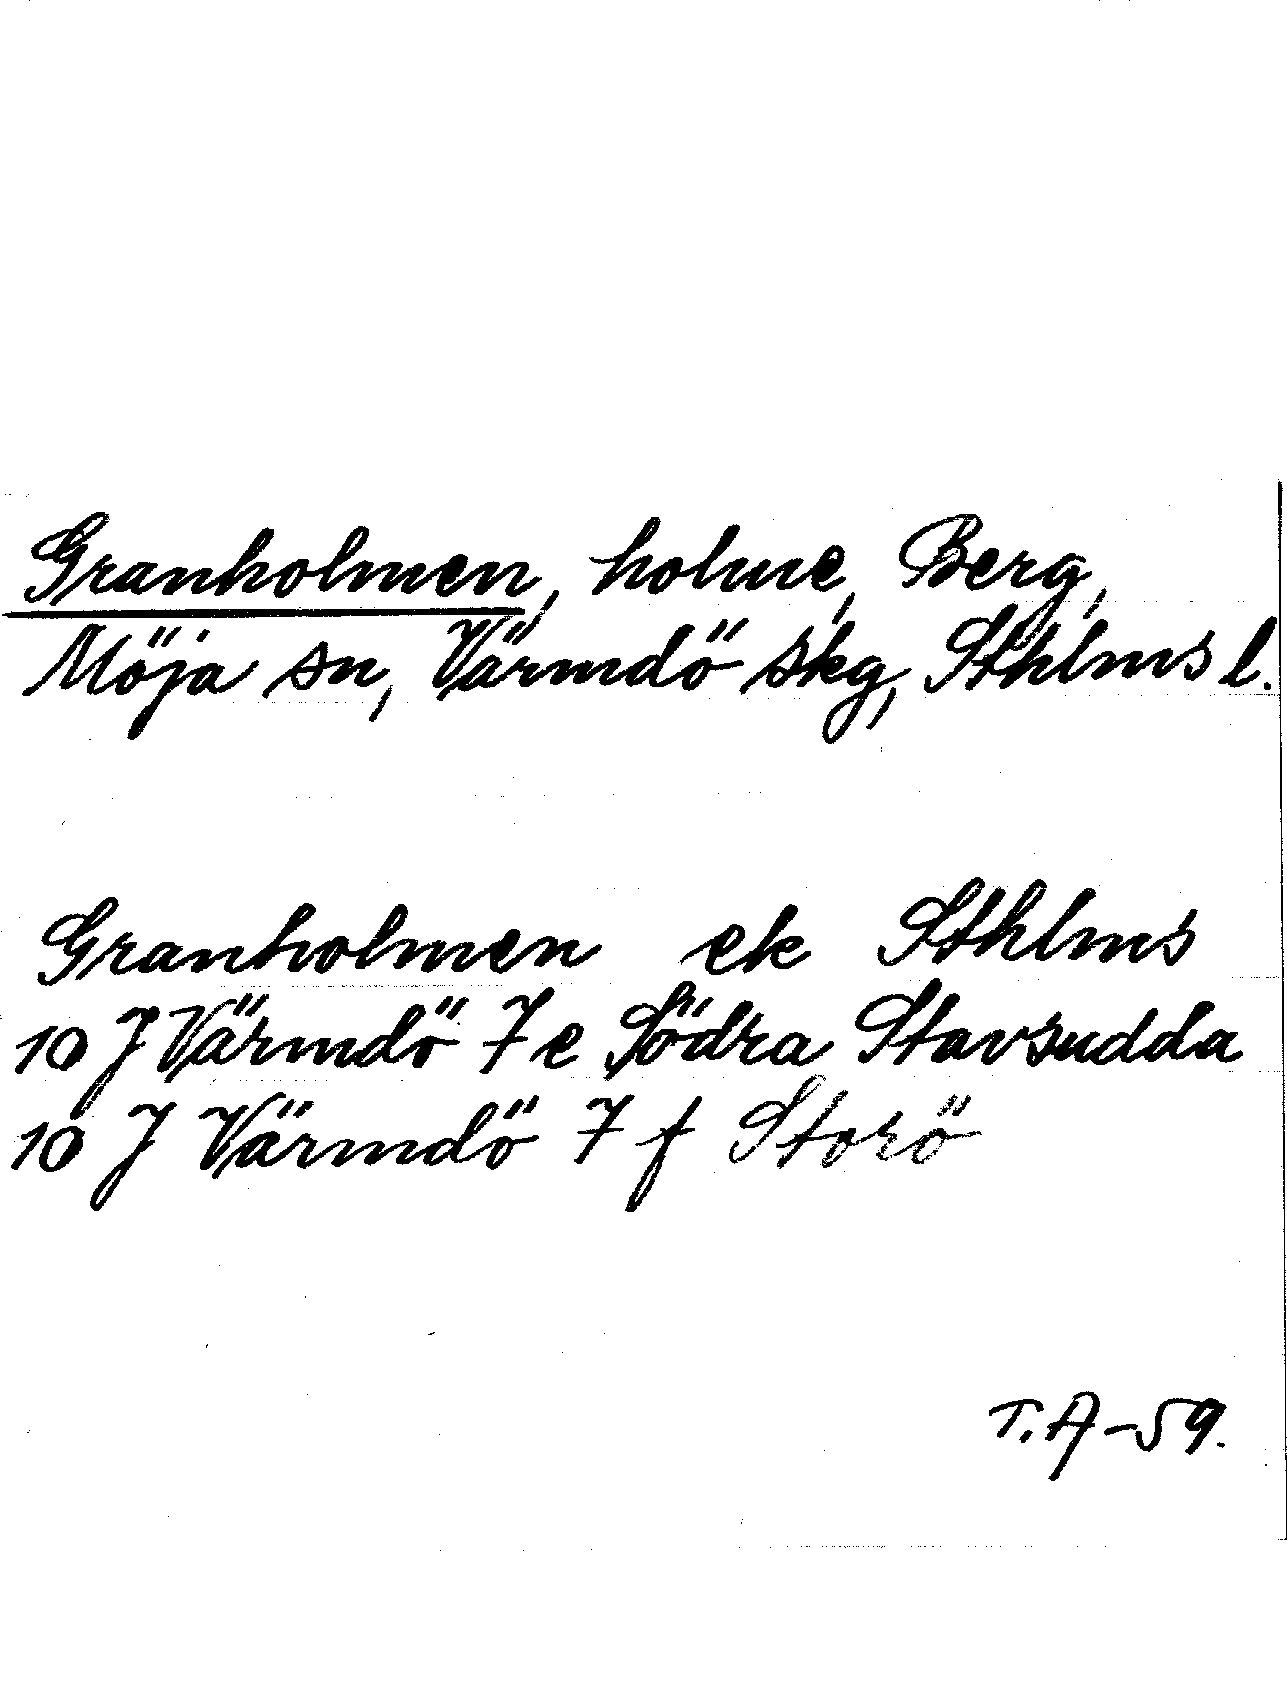 Granholmen, holme, Berg,
Möja sn, Värmdö skg, Sthlms l.
Granholmen ek Sthlms
10 J Värmdö 7 e Södra Stavsudda
10 J Värmdö 7 f Storö
T.A-59.